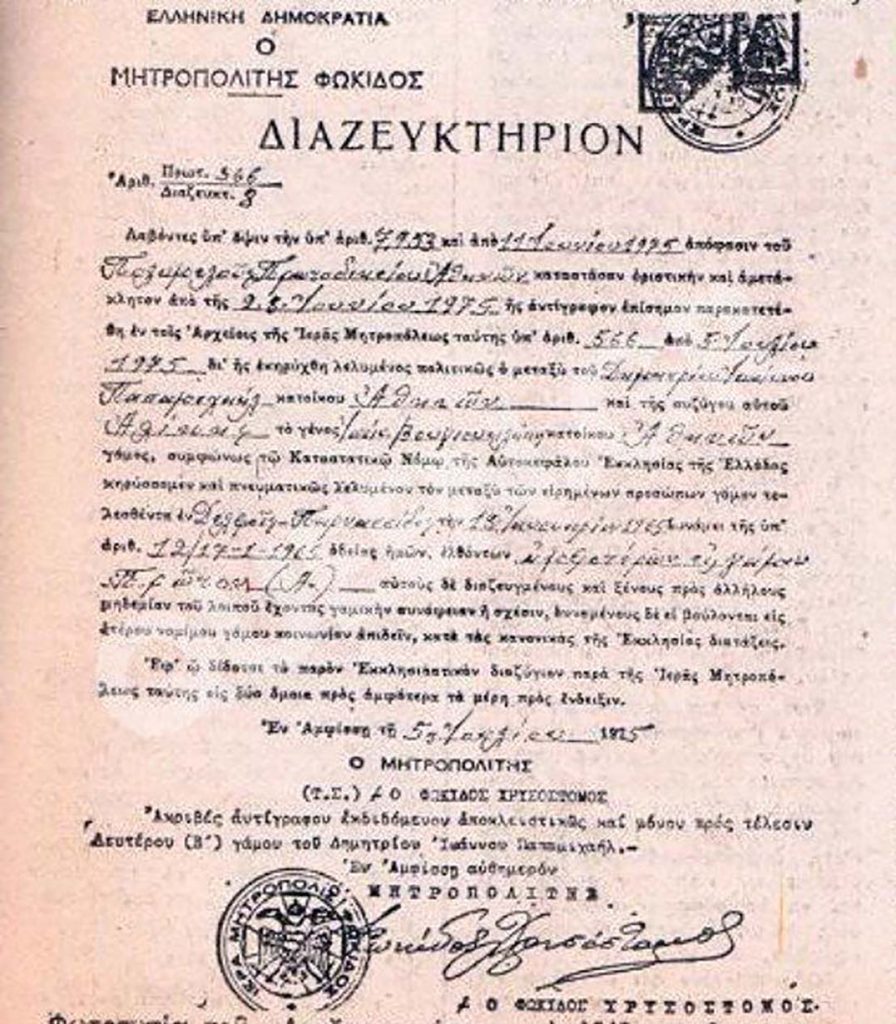 ΕΛΛΗΝΙΚΗ ΔΗΜΟΚΡΑΤΙΑ
Ο
ΜΗΤΡΟΠΟΛΙΤΗΣ ΦΩΚΙΔΟΣ
ΔΙΑΖΕΥΚΤΗΡΙΟΝ
Ἀριθ. Πρωτ. 566
Διαζευκτ. 8
Λαβόντες ὑπ' ὄψιν τὴν ὑπ' ἀριθ. 7953 καὶ ἀπὸ 11 Ἰουνίου 1975 ἀπόφασιν τοῦ
Πολυμελοῦς Πρωτοδικείου Ἀθηνῶν καταστᾶσαν ὁριστικὴν καὶ ἀμετά-
κλητον ἀπὸ τῆς 28 Ἰουνίου 1975 ἧς ἀντίγραφον ἐπίσημον παρακατετέ-
θη ἐν τοῖς Ἀρχείοις τῆς Ἱερᾶς Μητροπόλεως ταύτης ὑπ' ἀριθ. 566 ἀπὸ 5 Ἰουλίου
1975 δι' ἧς ἐκηρύχθη λελυμένος πολιτικῶς ὁ μεταξὺ τοῦ Δημητρίου Ἰωάννου
Παπαμιχαήλ κατοίκου Ἀθηνῶν καὶ τῆς συζύγου αὐτοῦ
Ἀλίκης τὸ γένος Βουγιουκλάκη κατοίκου Ἀθηνῶν
γάμος, συμφώνως τῷ Καταστατικῷ Νόμῳ τῆς Αὐτοκεφάλου Ἐκκλησίας τῆς Ἑλλάδος
κηρύσσομεν καὶ πνευματικῶς λελυμένον τὸν μεταξὺ τῶν εἰρημένων προσώπων γάμον τε-
λεσθέντα ἐν Δελφοῖς Παρνασσίδος τὴν 18 Ἰανουαρίου 1965 δυνάμει τῆς ὑπ'
ἀριθ. 12/17-1-1965 ἀδείας ἡμῶν, ἐλθόντων ἀμφοτέρων εἰς γάμον
Πρῶτον (Α.) αὐτοὺς δὲ διαζευγμένους καὶ ξένους πρὸς ἀλλήλους
μηδεμίαν τοῦ λοιποῦ ἔχοντας γαμικὴν συνάφειαν ἢ σχέσιν, δυναμένους δὲ εἰ βούλονται εἰς
ἑτέρου νομίμου γάμου κοινωνίαν ἀπιδεῖν, κατὰ τὰς κανονικὰς τῆς Ἐκκλησίας διατάξεις.
Ἐφ' ᾧ δίδοται τὸ παρὸν Ἐκκλησιαστικὸν διαζύγιον παρὰ τῆς Ἱερᾶς Μητροπό-
λεως ταύτης εἰς δύο ὅμοια πρὸς ἀμφότερα τὰ μέρη πρὸς ἔνδειξιν.
Ἐν Ἀμφίσσῃ τῇ 5ῃ Ἰουλίου 1975
Ο ΜΗΤΡΟΠΟΛΙΤΗΣ
(Τ.Σ.) Ο ΦΩΚΙΔΟΣ ΧΡΥΣΟΣΤΟΜΟΣ
Ἀκριβές ἀντίγραφον ἐκδιδόμενον ἀποκλειστικῶς καί μόνον πρός τέλεσιν
Δευτέρου (Β') γάμου τοῦ Δημητρίου Ἰωάννου Παπαμιχαήλ.-
Ἐν Ἀμφίσσῃ αὐθημερόν
ΜΗΤΡΟΠΟΛΙΤΗΣ
ΙΕΡΑ ΜΗΤΡΟΠΟΛΙΣ ΦΩΚΙΔΟΣ
Φωκίδος Χρυσόστομος
Ο ΦΩΚΙΔΟΣ ΧΡΥΣΟΣΤΟΜΟΣ.